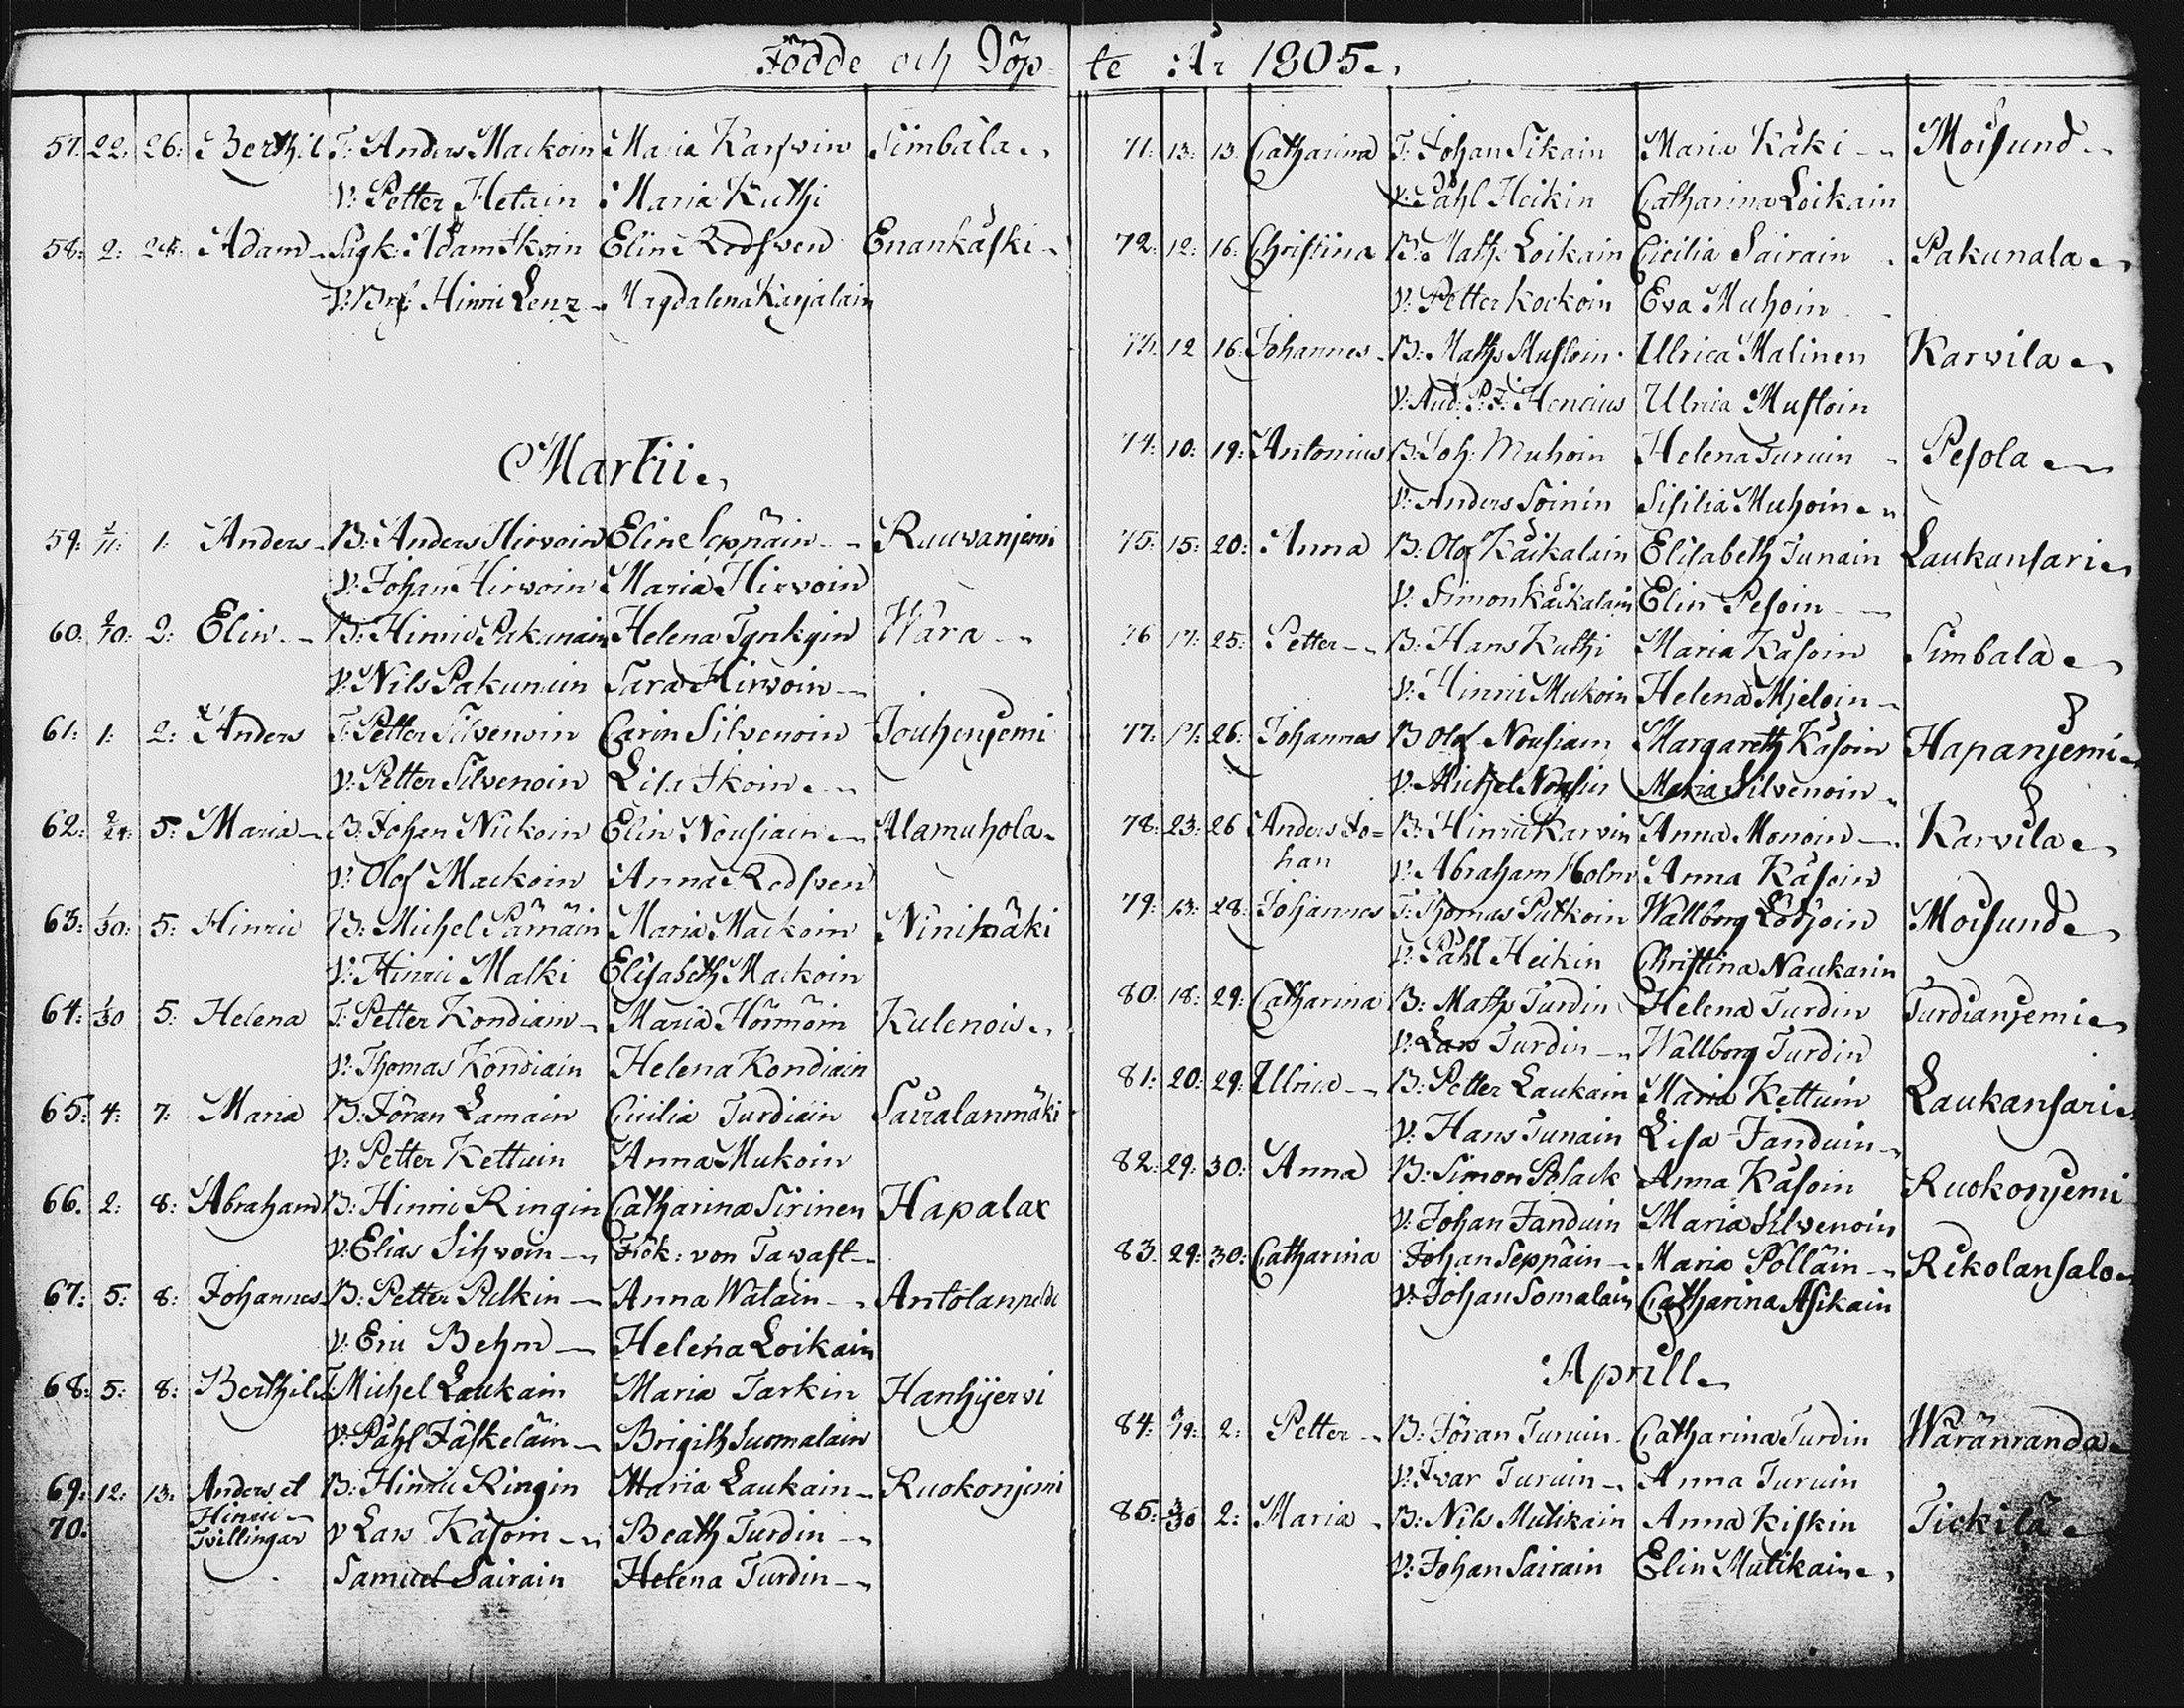 Födde och Döp te År 1805.
57. 22. 26: Berthil T: Anders Mackoin Maria Karfvin Simbala
V: Petter Hetain Maria Kuthi
58. 2: 24: Adam Sagk: Adam Ikoin Elin Rodsven Enankäski
V: Hinric Lenz Magdalena Karjalain
Martii
59. 1: Anders B: Anders Hirvoin Elin Seppäin Ruuvanjemi
V: Johan Hirvoin Maria Hirvoin
60. 2/10: 2: Elin B: Hinric Pakunain Helena Tynkyin Wära
V: Nils Pakunuin Sara Hirvoin
61: 1: 2: Anders T: Petter Silvenoin Carin Silvenoin Jouhenjemi
V: Petter Silvenoin Lisa Ikoin
62: 2/24: 5: Maria B: Johan Nickoin Elin Nousiain Alamuhola
V: Olof Mackoin Anna Rodsven
63: 1/30: 5: Hinric B: Michel Pämäin Maria Mackoin Ninimäki
V: Hinric Malki Elisabeth Mackoin
64: 1/30 5: Helena T: Petter Kondiain Maria Hörmöin Kulenois
V: Thomas Kondiain Helena Kondiain
65: 4: 7: Maria B: Jöran Lamain Cicilia Turdiain Sairalanmäki
V: Petter Kettuin Anna Mukoin
66. 2: 8: Abraham B: Hinric Ringin Catharina Sirinen Hapalax
V: Elias Sihvoin Frök: von Tawast
67: 5: 8: Johannes B: Petter Pelkin Anna Watain Antolanpeldo
V: Eric Behm Helena Loikain
68: 5: 8: Berthil T: Michel Laukain Maria Tarkin Hanhijervi
V: Påhl Jäskeläin Brigith Suomalain
69: 12: 13: Anders et B: Hinric Ringin Maria Laukain Ruokonjemi
70. Hinric
Tvillingar V: Lars Käsoin Beath Turdin
Samuel Sairain Helena Turdin
71. 13: 13 Catharina T: Johan Sikain Maria Käki Moisund
V: Påhl Heikin Catharina Loikain
72: 12: 16: Christina B: Maths Loikain Cicilia Sairain Pakunala
V: Petter Kockoin Eva Muhoin
73. 12 16: Johannes B: Maths Mustoin Ulrica Malinen Karvila
V: Aud: P: J: Honcius Ulrica Mustoin
74: 10: 19: Antonius B: Joh: Muhoin Helena Turuin Pesola
V: Anders Soinin Sisilia Muhoin
75: 15: 20: Anna B: Olof Käikalain Elisabeth Junain Laukansari
V: Simon Käikalain Elin Pesoin
76 17: 25: Petter B: Hans Kuthi Maria Käsoin Simbala
V: Hinric Mukoin Helena Mieloin
77: 17: 26: Johannes B Olof Nousiain Margareth Käsoin Hapanjemi
V: Michel Nousin Maria Silvenoin
78: 23: 26 Anders Jo= B: Hinric Karvin Anna Monoin Karvila
han V: Abraham Holm Anna Käsoin
79: 13: 28: Johannes T: Thomas Putkoin Wallborg Lödjoin Moisund
V: Påhl Heikin Christina Naukarin
80: 18: 29: Catharina B: Maths Turdin Helena Turdin Turdianjemi
V: Lars Turdin Wallborg Turdin
81: 20: 29: Ulrica B: Petter Laukain Maria Kettuin Laukansari
V: Hans Junain Lisa Janduin
82: 29: 30: Anna B: Simon Polack Anna Käsoin Ruokonjemi
V: Johan Janduin Maria Silvenoin
83: 29: 30: Catharina Johan Seppäin Maria Pölläin Rikolansalo
V: Johan Somalain Catharina Asikain
Aprill
84: 2: Petter B: Jöran Turuin Catharina Turdin Wäränranda
V: Ivar Turuin Anna Turuin
85: 3/30 2: Maria B: Nils Mutikain Anna Kiskin Tickilä
V: Johan Sairain Elin Mutikain